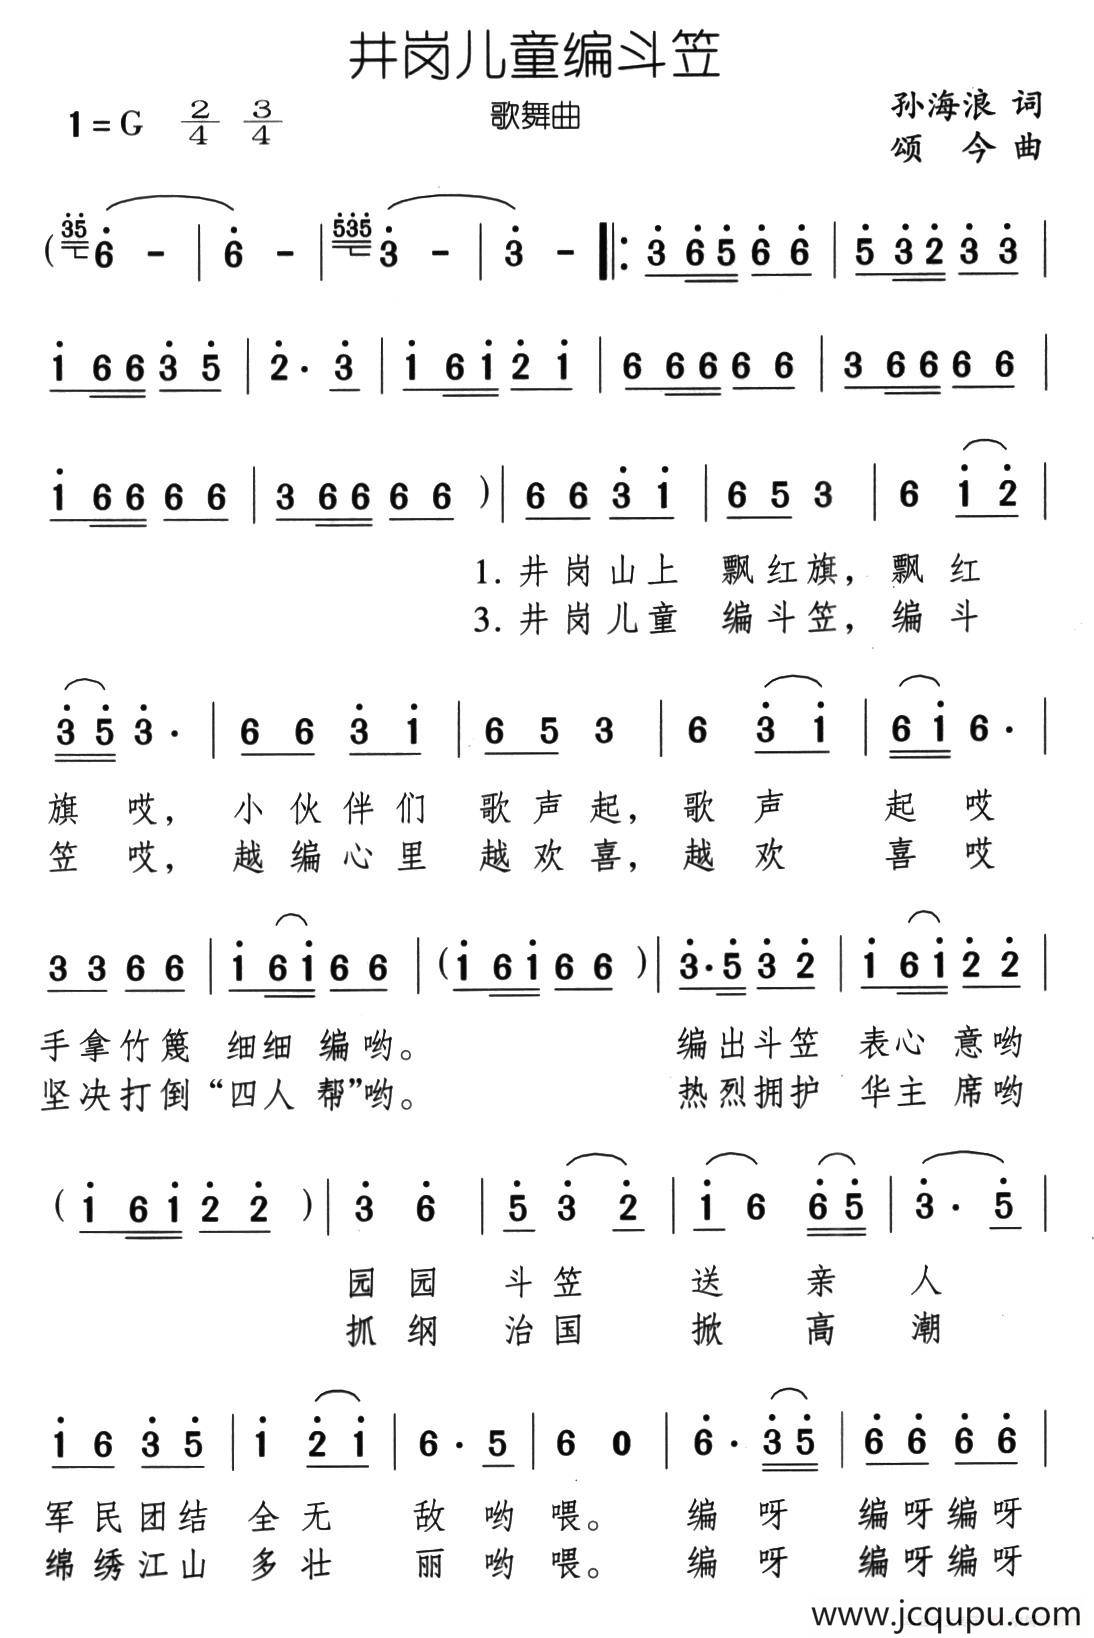 井岗儿童编斗笠
歌舞曲
1=G 2/4 3/4
孙海浪 词
颂 今 曲
( 35 6̇ - | 6̇ - | 535 3̇ - | 3̇ - |: 3̇ 6̇ 5̇ 6̇ 6̇ | 5̇ 3̇ 2̇ 3̇ 3̇ |
1̇ 6 6 3̇ 5̇ | 2̇ · 3̇ | 1̇ 6 1̇ 2̇ 1̇ | 6 6 6 6 6 | 3 6 6 6 6 |
1̇ 6 6 6 6 | 3 6 6 6 6 ) | 6 6 3̇ 1̇ | 6 5 3 | 6 1̇ 2̇ |
1. 井岗山上 飘红旗，飘 红
3. 井岗儿童 编斗笠，编 斗
3̇ 5̇ 3̇ · | 6 6 3̇ 1̇ | 6 5 3 | 6 3̇ 1̇ | 6 1̇ 6 · |
旗 哎，小伙伴们 歌声起，歌声 起 哎
笠 哎，越编心里 越欢喜，越欢 喜 哎
3 3 6 6 | 1̇ 6 1̇ 6 6 | ( 1̇ 6 1̇ 6 6 ) | 3̇ · 5̇ 3̇ 2̇ | 1̇ 6 1̇ 2̇ 2̇ |
手拿竹篾 细细 编哟。 编出斗笠 表心 意哟
坚决打倒“四人 帮”哟。 热烈拥护 华主 席哟
( 1̇ 6 1̇ 2̇ 2̇ ) | 3̇ 6̇ | 5̇ 3̇ 2̇ | 1̇ 6 6̇ 5̇ | 3̇ · 5̇ |
园园 斗笠 送 亲 人
抓纲 治国 掀 高 潮
1̇ 6 3̇ 5̇ | 1̇ 2̇ 1̇ | 6 · 5 | 6 0 | 6̇ · 3̇ 5̇ | 6̇ 6̇ 6̇ 6̇ |
军民团结 全无 敌 哟 喂。 编 呀 编呀编呀
绵绣江山 多壮 丽 哟 喂。 编 呀 编呀编呀
www.jcqupu.com